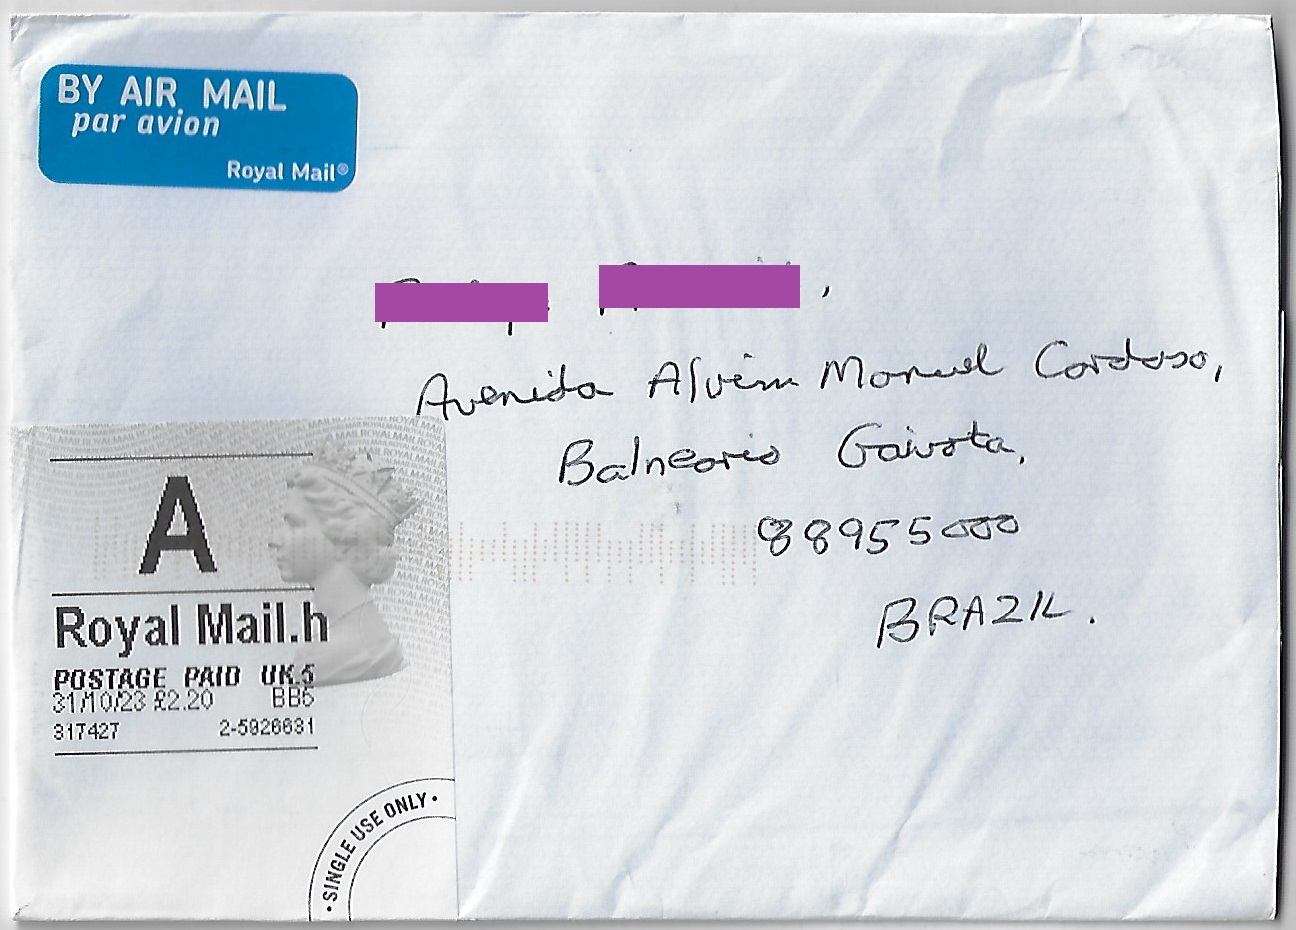 BY AIR MAIL
par avion
Royal Mail®
Avenida Alvim Manuel Cardoso,
Balneario Gaivota,
88955000
BRAZIL.
A
Royal Mail.h
POSTAGE PAID UK.5
31/10/23 £2.20 BB6
317427 2-5926631
• SINGLE USE ONLY •